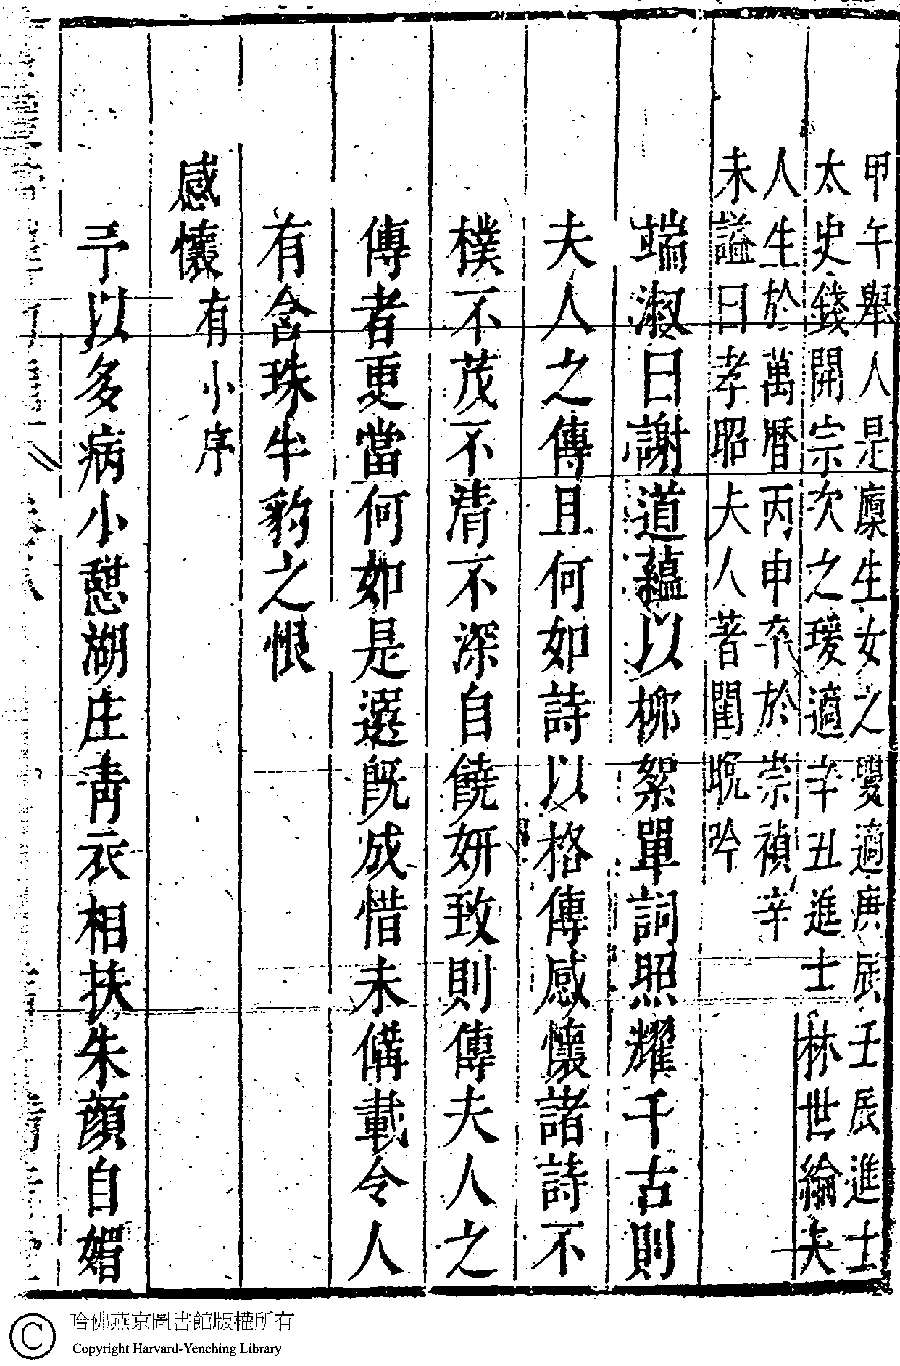 甲午舉人是廩生女之嬰適庚辰壬辰進士
太史錢開宗次之瑗適辛丑進士林世綸夫
人生於萬曆丙申卒於崇禎辛
未諡曰孝昭夫人著閨晚吟
端淑曰謝道蘊以柳絮單詞照耀千古則
夫人之傳且何如詩以格傳感懷諸詩不
樸不茂不清不深自饒妍致則傳夫人之
傳者更當何如是選既成惜未備載令人
有含珠半豹之恨
感懷有小序
予以多病小憇湖庄青衣相扶朱顏自媚
哈佛燕京圖書館版權所有
Copyright Harvard-Yenching Library